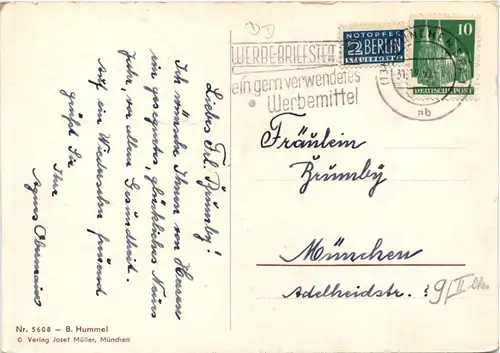 Liebes Frl. Brumby!
Ich wünsche Ihnen von Herzen
ein gesegnetes, glückliches Neues
Jahr, vor allem Gesundheit.
Auf ein Wiedersehen freuend
grüßt Sie
Ihre
Agnes
NOTOPFER
2 BERLIN
STEUERMARKE
10
DEUTSCHE POST
WERBE-BRIEFSTEMPEL
ein gern verwendetes
Werbemittel
MÜNCHEN
31.
ab
Fräulein
Brumby
München
Adelheidstr. 9/II
Nr. 5608 — B. Hummel
© Verlag Josef Müller, München